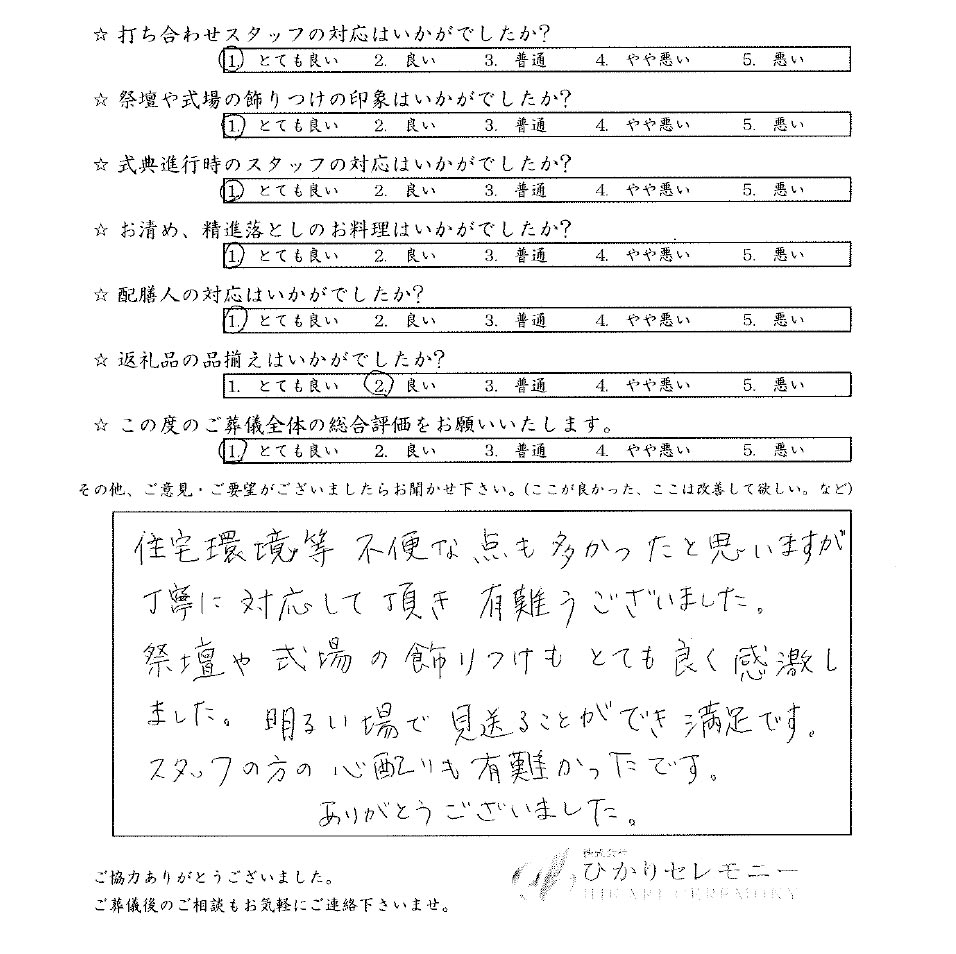 ☆ 打ち合わせスタッフの対応はいかがでしたか?
1. とても良い 2. 良い 3. 普通 4. やや悪い 5. 悪い
☆ 祭壇や式場の飾りつけの印象はいかがでしたか?
1. とても良い 2. 良い 3. 普通 4. やや悪い 5. 悪い
☆ 式典進行時のスタッフの対応はいかがでしたか?
1. とても良い 2. 良い 3. 普通 4. やや悪い 5. 悪い
☆ お清め、精進落としのお料理はいかがでしたか?
1. とても良い 2. 良い 3. 普通 4. やや悪い 5. 悪い
☆ 配膳人の対応はいかがでしたか?
1. とても良い 2. 良い 3. 普通 4. やや悪い 5. 悪い
☆ 返礼品の品揃えはいかがでしたか?
1. とても良い 2. 良い 3. 普通 4. やや悪い 5. 悪い
☆ この度のご葬儀全体の総合評価をお願いいたします。
1. とても良い 2. 良い 3. 普通 4. やや悪い 5. 悪い
その他、ご意見・ご要望がございましたらお聞かせ下さい。(ここが良かった、ここは改善して欲しい。など)
住宅環境等 不便な点も多かったと思いますが
丁寧に対応して頂き 有難うございました。
祭壇や式場の飾りつけも とても良く感激し
ました。明るい場で見送ることができ満足です。
スタッフの方の心配りも有難かったです。
ありがとうございました。
株式会社
ひかりセレモニー
HIKARI CEREMONY
ご協力ありがとうございました。
ご葬儀後のご相談もお気軽にご連絡下さいませ。